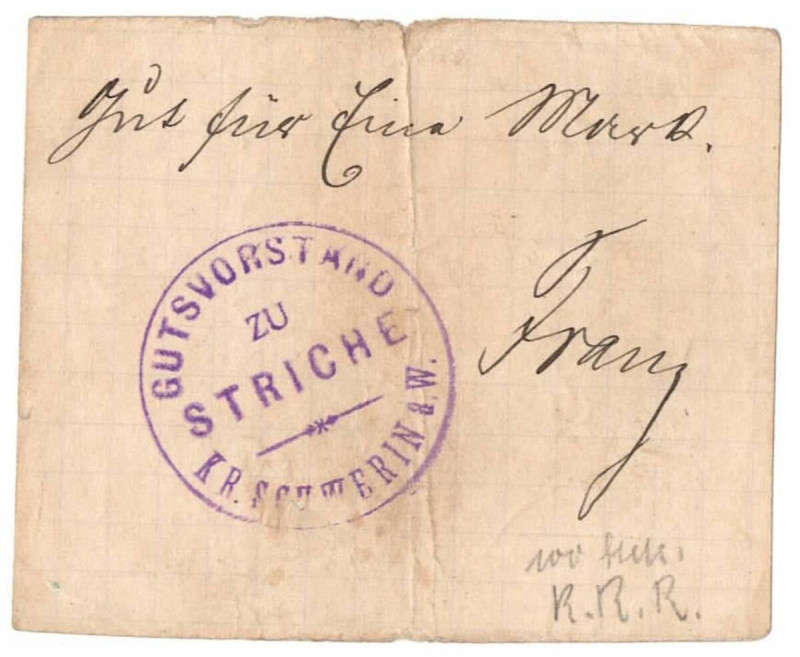 Gut für Eine Mark.
GUTSVORSTAND
ZU
STRICHE
KR. SCHWERIN a.W.
Franz
R.R.R.